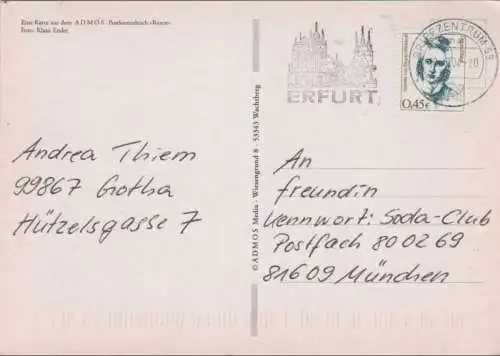 Eine Karte aus dem ADMOS-Postkartenbuch «Katzen»
Foto: Klaus Ender
BRIEFZENTRUM 99
ERFURT
0,45€
Andrea Thiem
99867 Gotha
Hützelsgasse 7
© ADMOS Media · Wiesengrund 8 · 53343 Wachtberg
An
freundin
Kennwort: Soda-Club
Postfach 80 02 69
81609 München